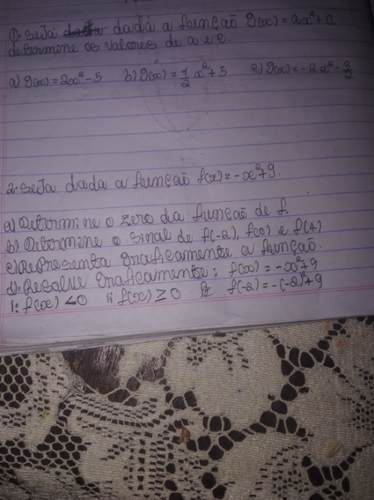 1. Seja dada a função g(x) = ax² + c.
determine os valores de a e c.
a) g(x) = 2x² - 5 b) g(x) = 1/2 x² + 5 c) g(x) = -2x² - 3/2
2. Seja dada a função f(x) = -x² + 9.
a) Determine o zero da função de f.
b) Determine o sinal de f(-2), f(0) e f(4)
c) Representa graficamente a função.
d) Resolve graficamente: f(x) = -x² + 9
i: f(x) < 0 ii f(x) ≥ 0 f(-2) = -(-2)² + 9